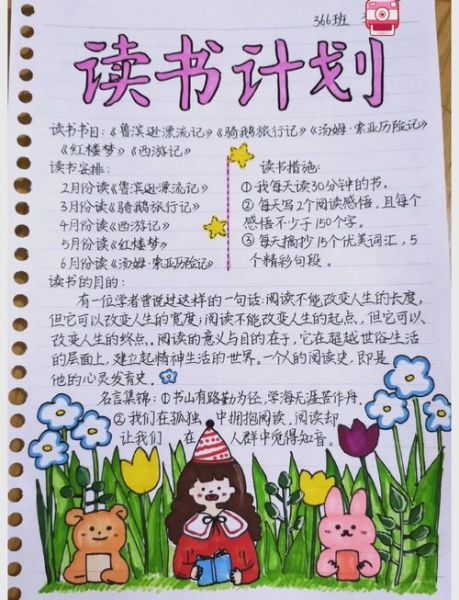 366班
读书计划
读书书目:《鲁滨逊漂流记》《骑鹅旅行记》《汤姆·索亚历险记》
《红楼梦》《西游记》
读书安排:
2月份读《鲁滨逊漂流记》
3月份读《骑鹅旅行记》
4月份读《西游记》
5月份读《红楼梦》
6月份读《汤姆·索亚历险记》
读书措施:
①我每天读30分钟的书。
②每天写2个阅读感悟,且每个
感悟不少于150个字。
③每天摘抄15个优美词汇,5
个精彩句段。
读书的目的:
有一位学者曾说过这样的一句话:阅读不能改变人生的长度,
但它可以改变人生的宽度;阅读不能改变人生的起点,但它可以
改变人生的终点。阅读的意义与目的在于,它在超越世俗生活
的层面上,建立起精神生活的世界。一个人的阅读史,即是
他的心灵发育史。
名言集锦:①书山有路勤为径,学海无涯苦作舟。
②我们在孤独中拥抱阅读,阅读却
让我们在人群中觅得知音。